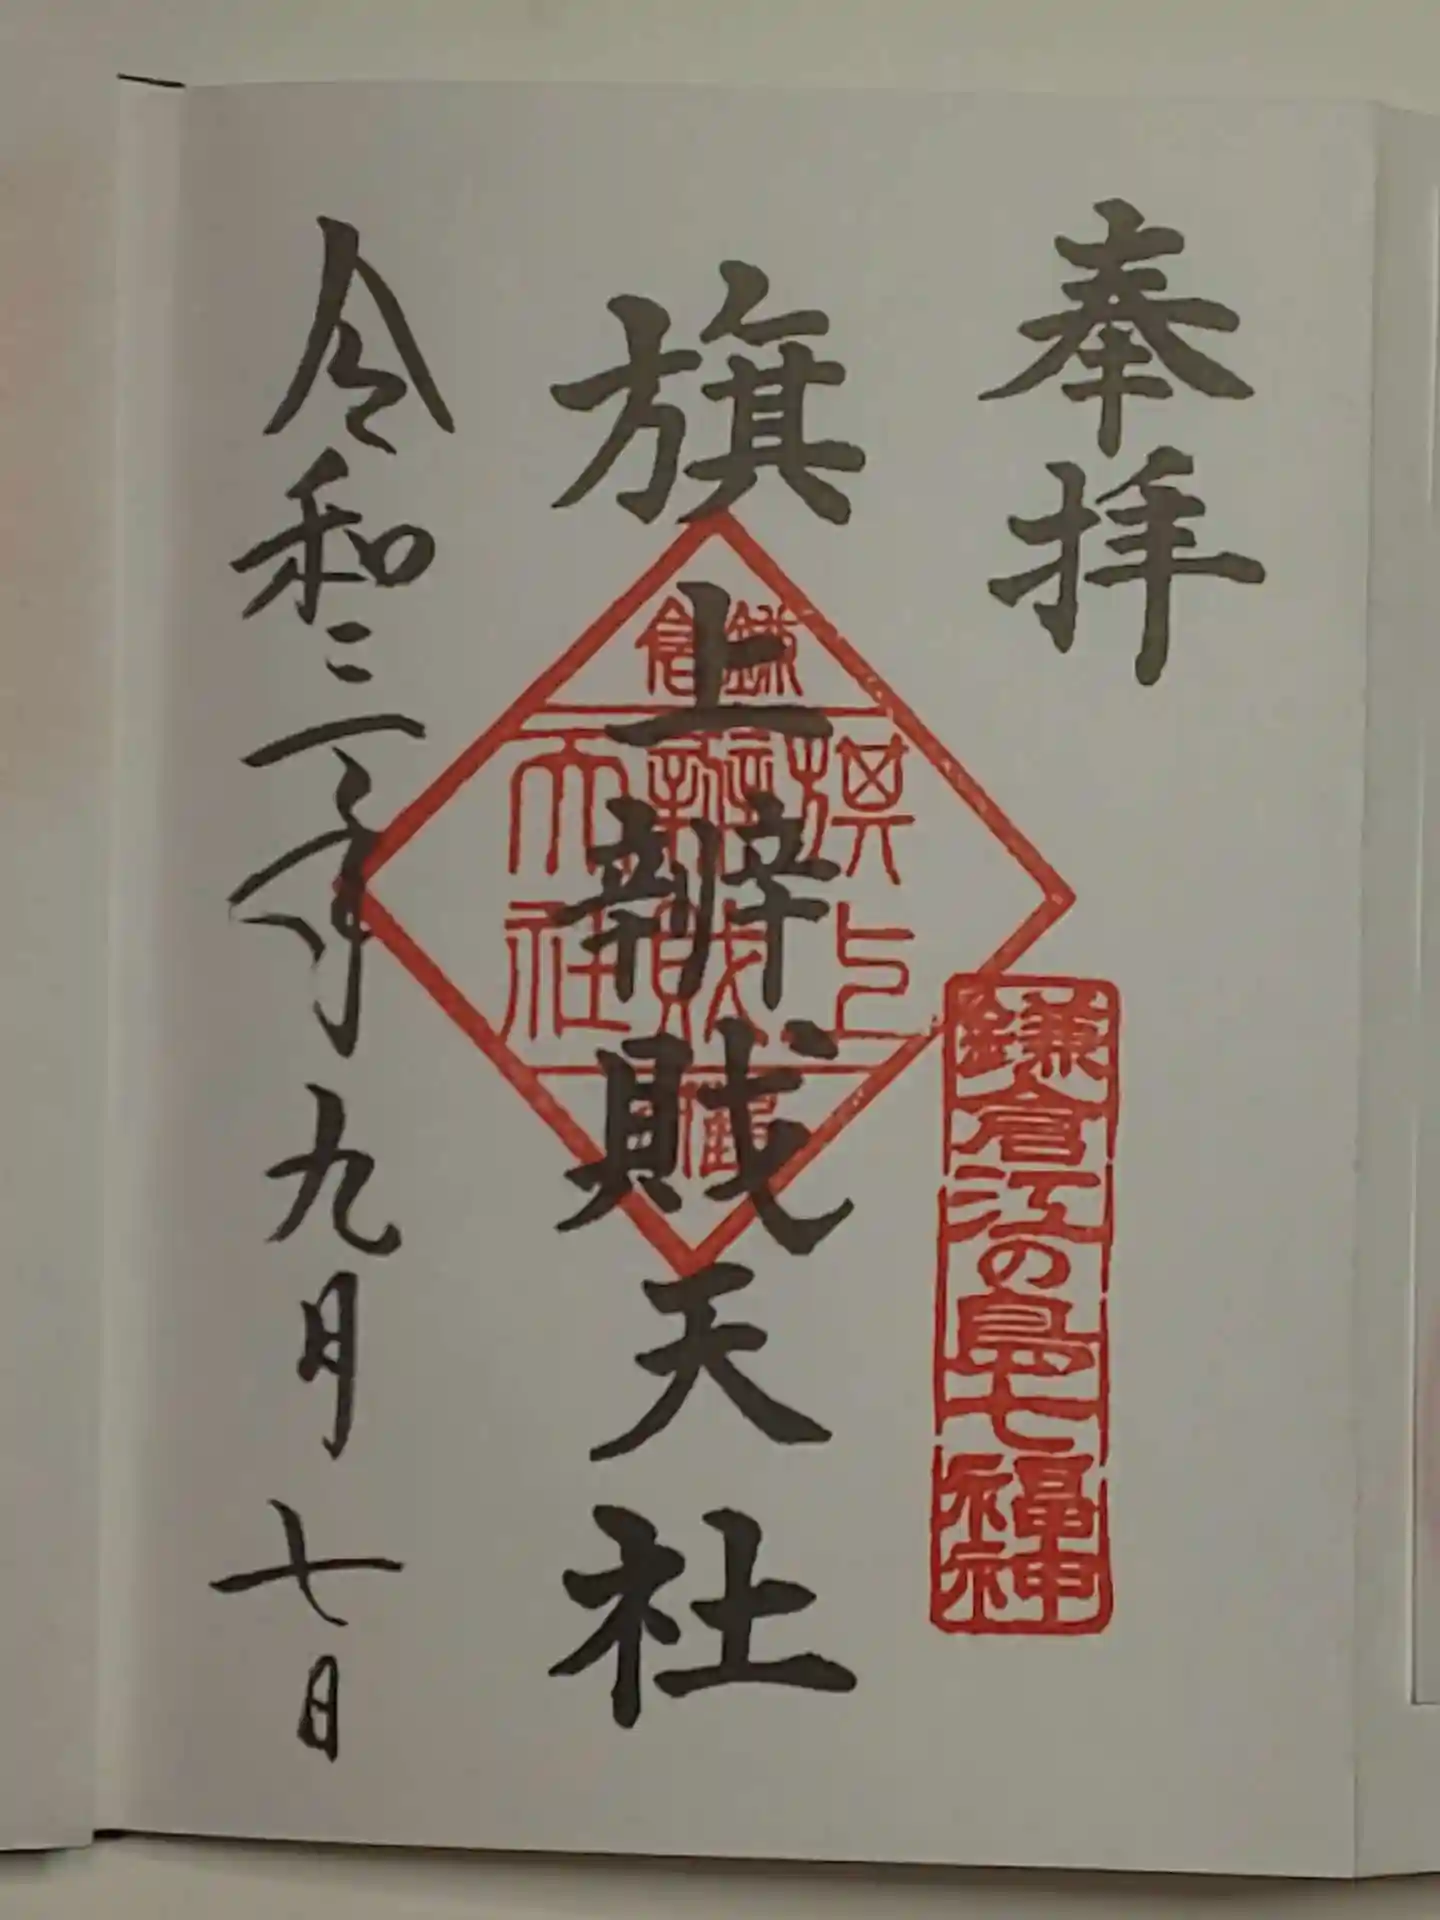 奉拝
鎌倉江の島七福神
旗上辨財天社
鎌倉
旗上
辨財
天社
令和三年九月七日